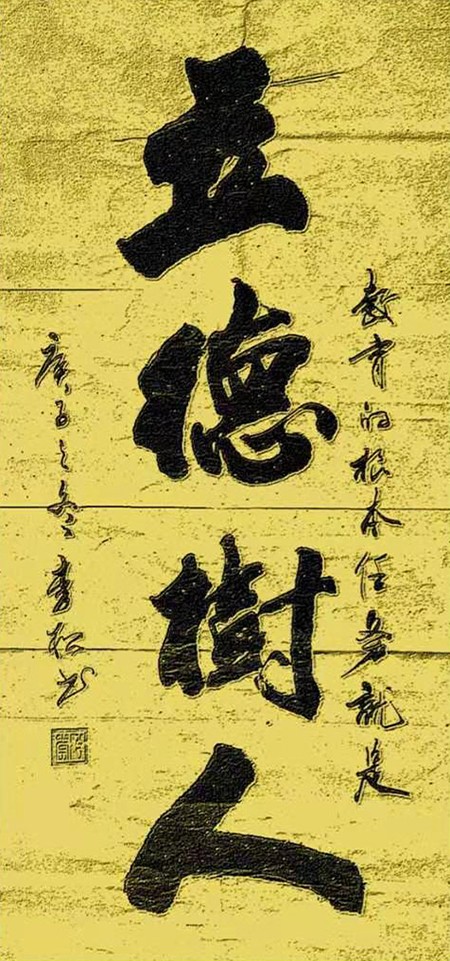 教育的根本任务就是
立德樹人
庚子之冬李松书